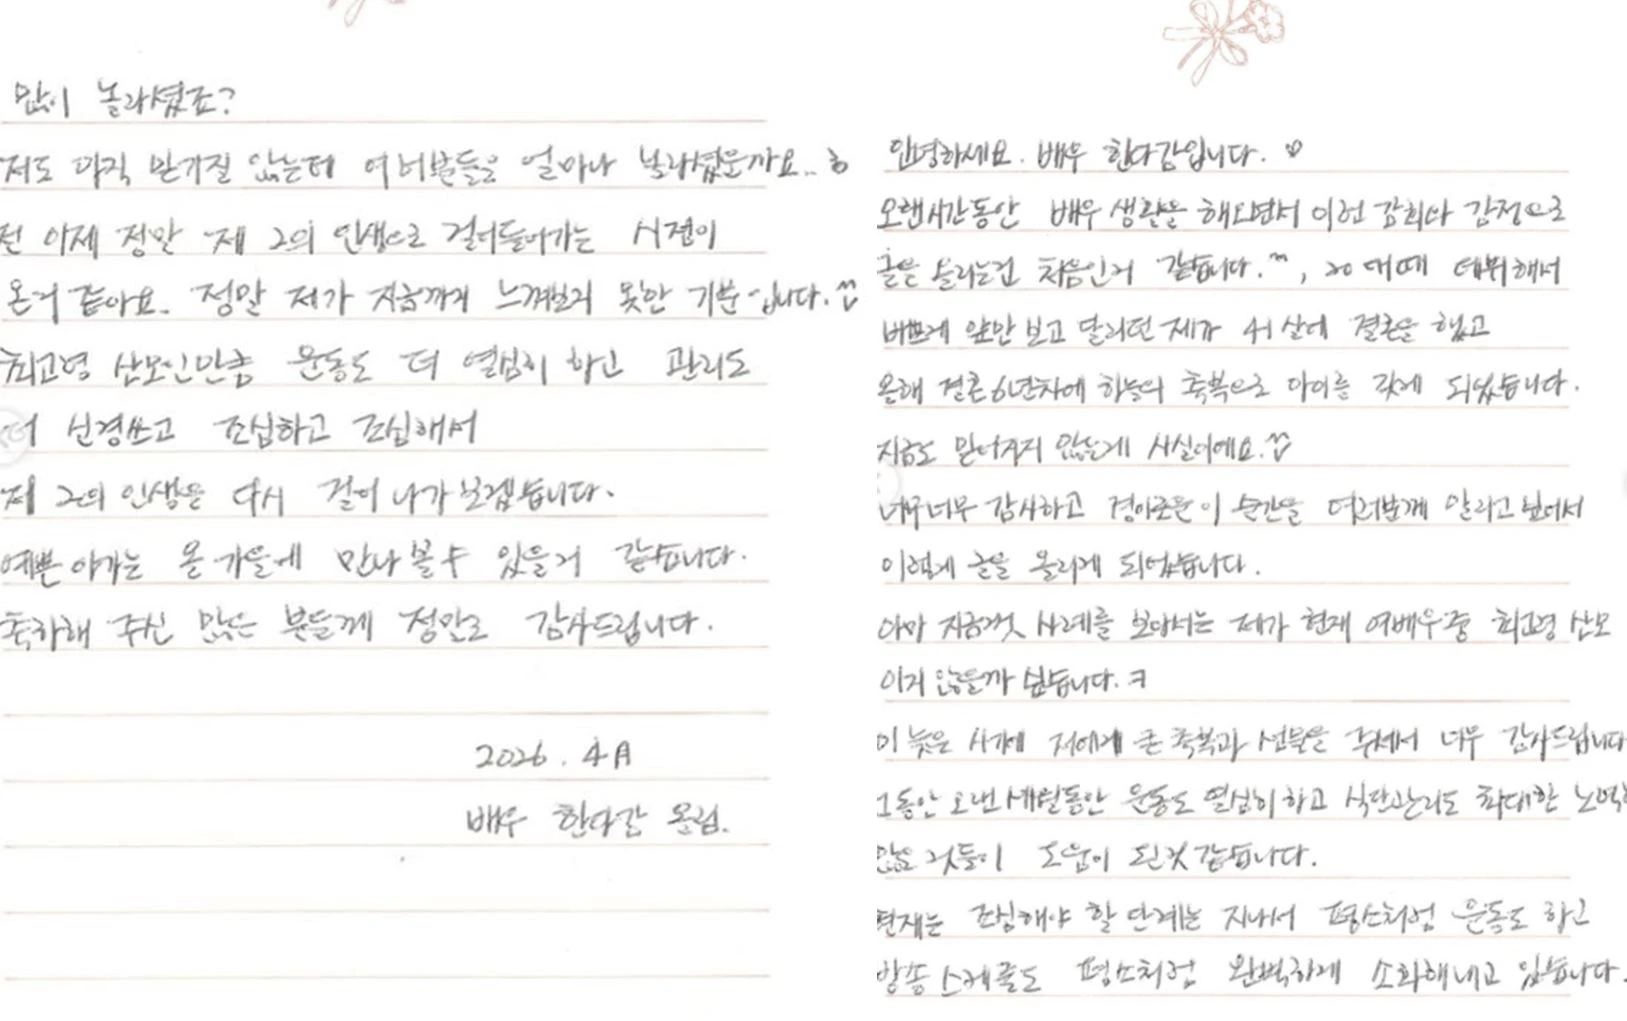 안녕하세요. 배우 한다감입니다. ♡
오랜시간동안 배우 생활을 해오면서 이런 감회와 감정으로
글을 올리는건 처음인거 같습니다.^^, 20대때 데뷔해서
바쁘게 앞만 보고 달리던 제가 41살에 결혼을 했고
올해 결혼 6년차에 하늘의 축복으로 아이를 갖게 되었습니다.
지금도 믿어지지 않는게 사실이에요.^^
너무너무 감사하고 경이로운 이 순간을 여러분께 알리고 싶어서
이렇게 글을 올리게 되었습니다.
아마 지금껏 사례를 보아서는 제가 현재 여배우중 최고령 산모
이지 않을까 싶습니다.ㅋ
이 늦은 시기에 저에게 큰 축복과 선물을 주셔서 너무 감사드립니다
그동안 오랜세월동안 운동도 열심히 하고 식단관리도 최대한 노력
많은 것들이 도움이 된것 같습니다.
현재는 조심해야 할 단계는 지나서 평소처럼 운동도 하고
방송 스케줄도 평소처럼 완벽하게 소화해내고 있습니다.
많이 놀라셨죠?
저도 아직 믿기질 않는데 여러분들은 얼마나 놀라셨을까요..ㅎ
전 이제 정말 제 2의 인생으로 걸어들어가는 시점이
온거 같아요. 정말 제가 지금까지 느껴보지 못한 기분입니다.^^
최고령 산모인만큼 운동도 더 열심히 하고 관리도
더 신경쓰고 조심하고 조심해서
제 2의 인생을 다시 걸어 나가보겠습니다.
예쁜 아가는 올 가을에 만나 볼 수 있을거 같습니다.
축하해 주신 많은 분들께 정말로 감사드립니다.
2026. 4月
배우 한다감 올림.